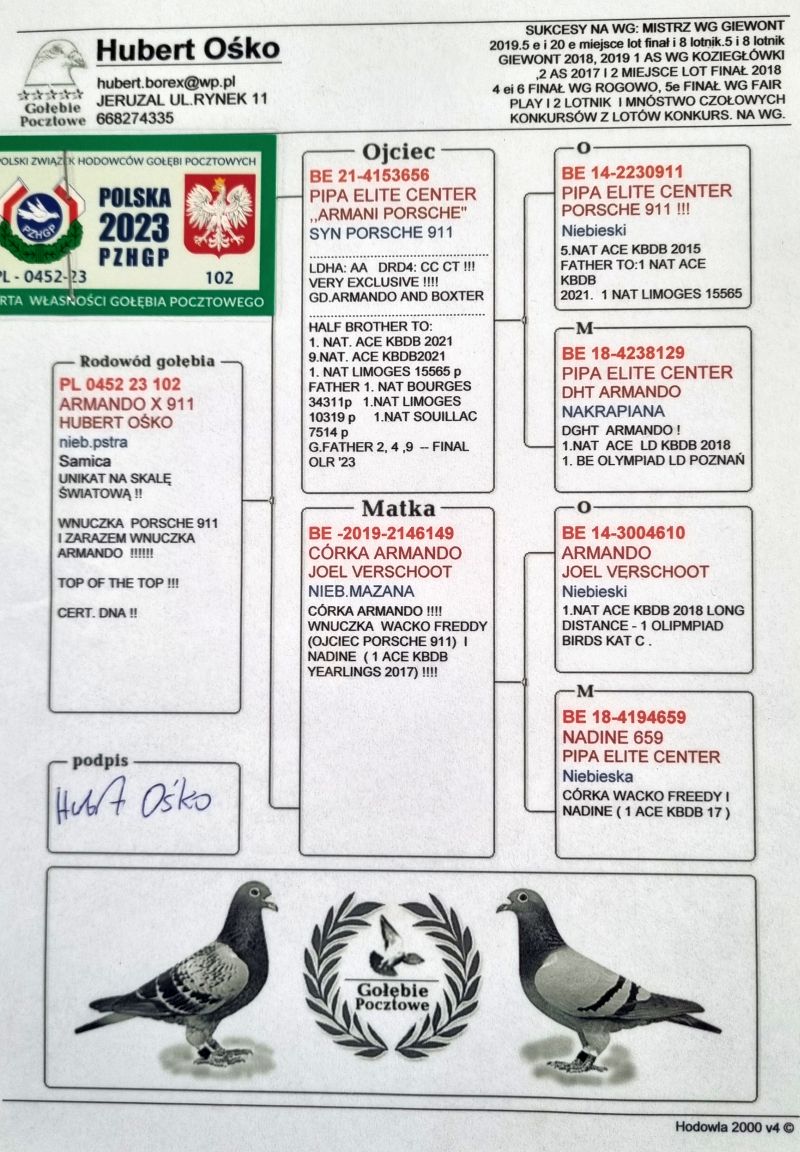 Hubert Ośko
hubert.borex@wp.pl
JERUZAL UL.RYNEK 11
668274335
Gołębie
Pocztowe
SUKCESY NA WG: MISTRZ WG GIEWONT
2019.5 e i 20 e miejsce lot finał i 8 lotnik.5 i 8 lotnik
GIEWONT 2018, 2019 1 AS WG KOZIEGŁÓWKI
,2 AS 2017 I 2 MIEJSCE LOT FINAŁ 2018
4 ei 6 FINAŁ WG ROGOWO, 5e FINAŁ WG FAIR
PLAY I 2 LOTNIK I MNÓSTWO CZOŁOWYCH
KONKURSÓW Z LOTÓW KONKURS. NA WG.
POLSKI ZWIĄZEK HODOWCÓW GOŁĘBI POCZTOWYCH
PZHGP
POLSKA
2023
PZHGP
PL - 0452-23
102
KARTA WŁASNOŚCI GOŁĘBIA POCZTOWEGO
Rodowód gołębia
PL 0452 23 102
ARMANDO X 911
HUBERT OŚKO
nieb.pstra
Samica
UNIKAT NA SKALĘ
ŚWIATOWĄ !!
WNUCZKA PORSCHE 911
I ZARAZEM WNUCZKA
ARMANDO !!!!!!
TOP OF THE TOP !!!
CERT. DNA !!
podpis
Hubert Ośko
Ojciec
BE 21-4153656
PIPA ELITE CENTER
,,ARMANI PORSCHE"
SYN PORSCHE 911
LDHA: AA DRD4: CC CT !!!
VERY EXCLUSIVE !!!!
GD.ARMANDO AND BOXTER
HALF BROTHER TO:
1. NAT. ACE KBDB 2021
9.NAT. ACE KBDB2021
1. NAT LIMOGES 15565 p
FATHER 1. NAT BOURGES
34311p 1.NAT LIMOGES
10319 p 1.NAT SOUILLAC
7514 p
G.FATHER 2, 4 ,9 -- FINAL
OLR '23
Matka
BE -2019-2146149
CÓRKA ARMANDO
JOEL VERSCHOOT
NIEB.MAZANA
CÓRKA ARMANDO !!!!
WNUCZKA WACKO FREDDY
(OJCIEC PORSCHE 911) I
NADINE ( 1 ACE KBDB
YEARLINGS 2017) !!!!
O
BE 14-2230911
PIPA ELITE CENTER
PORSCHE 911 !!!
Niebieski
5.NAT ACE KBDB 2015
FATHER TO:1 NAT ACE
KBDB
2021. 1 NAT LIMOGES 15565
M
BE 18-4238129
PIPA ELITE CENTER
DHT ARMANDO
NAKRAPIANA
DGHT ARMANDO !
1.NAT ACE LD KBDB 2018
1. BE OLYMPIAD LD POZNAŃ
O
BE 14-3004610
ARMANDO
JOEL VERSCHOOT
Niebieski
1.NAT ACE KBDB 2018 LONG
DISTANCE - 1 OLIPMPIAD
BIRDS KAT C .
M
BE 18-4194659
NADINE 659
PIPA ELITE CENTER
Niebieska
CÓRKA WACKO FREEDY I
NADINE ( 1 ACE KBDB 17 )
Gołębie
Pocztowe
Hodowla 2000 v4 ©